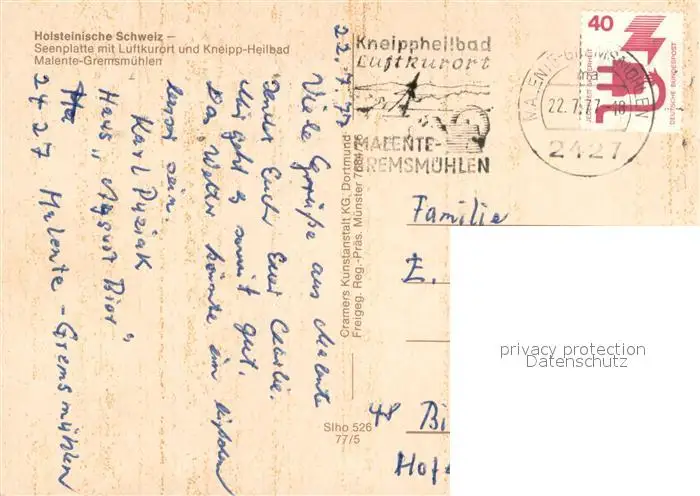 Holsteinische Schweiz –
Seenplatte mit Luftkurort und Kneipp-Heilbad
Malente-Gremsmühlen
22.7.77
Viele Grüße aus Malente
sendet Euch Euer
Mir geht es soweit gut.
Das Wetter könnte ein bißchen
besser sein.
Karl
Haus "August Bier"
2427 Malente-Gremsmühlen
Cramers Kunstanstalt KG, Dortmund
Freigeg. Reg.-Präs. Münster
Slho 526
77/5
Kneippheilbad
Luftkurort
MALENTE-
GREMSMÜHLEN
MALENTE-GREMSMÜHLEN
ma
22.7.77-18
2427
40
JEDERZEIT SICHERHEIT
DEUTSCHE BUNDESPOST
Familie
E.
48 Bi
Hof
privacy protection
Datenschutz